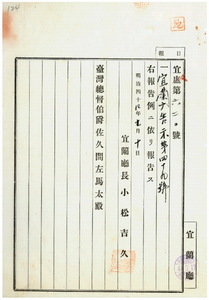 124
日
宜庶第六二〇號
一宜蘭廳告示第四十九號
右報告例ニ依リ報告ス
明治四十年 月十日
宜蘭廳長小松吉久
臺灣總督伯爵佐久間左馬太殿
宜蘭廳